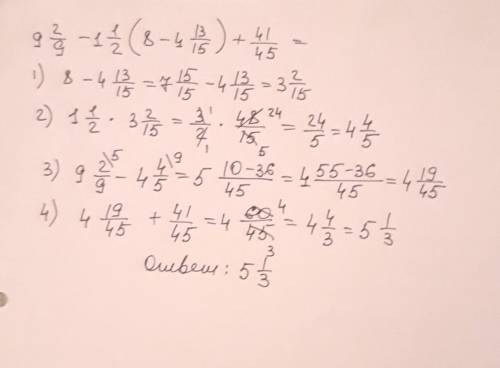 9 2/9 − 1 1/2 (8 − 4 13/15) + 41/45 =
1) 8 − 4 13/15 = 7 15/15 − 4 13/15 = 3 2/15
2) 1 1/2 · 3 2/15 = 3 1/2 1 · 48 24/15 5 = 24/5 = 4 4/5
3) 9 2/9 \5 − 4 4/5 \9 = 5 10−36/45 = 4 55−36/45 = 4 19/45
4) 4 19/45 + 41/45 = 4 60 4/45 3 = 4 4/3 = 5 1/3
Ответ: 5 1/3